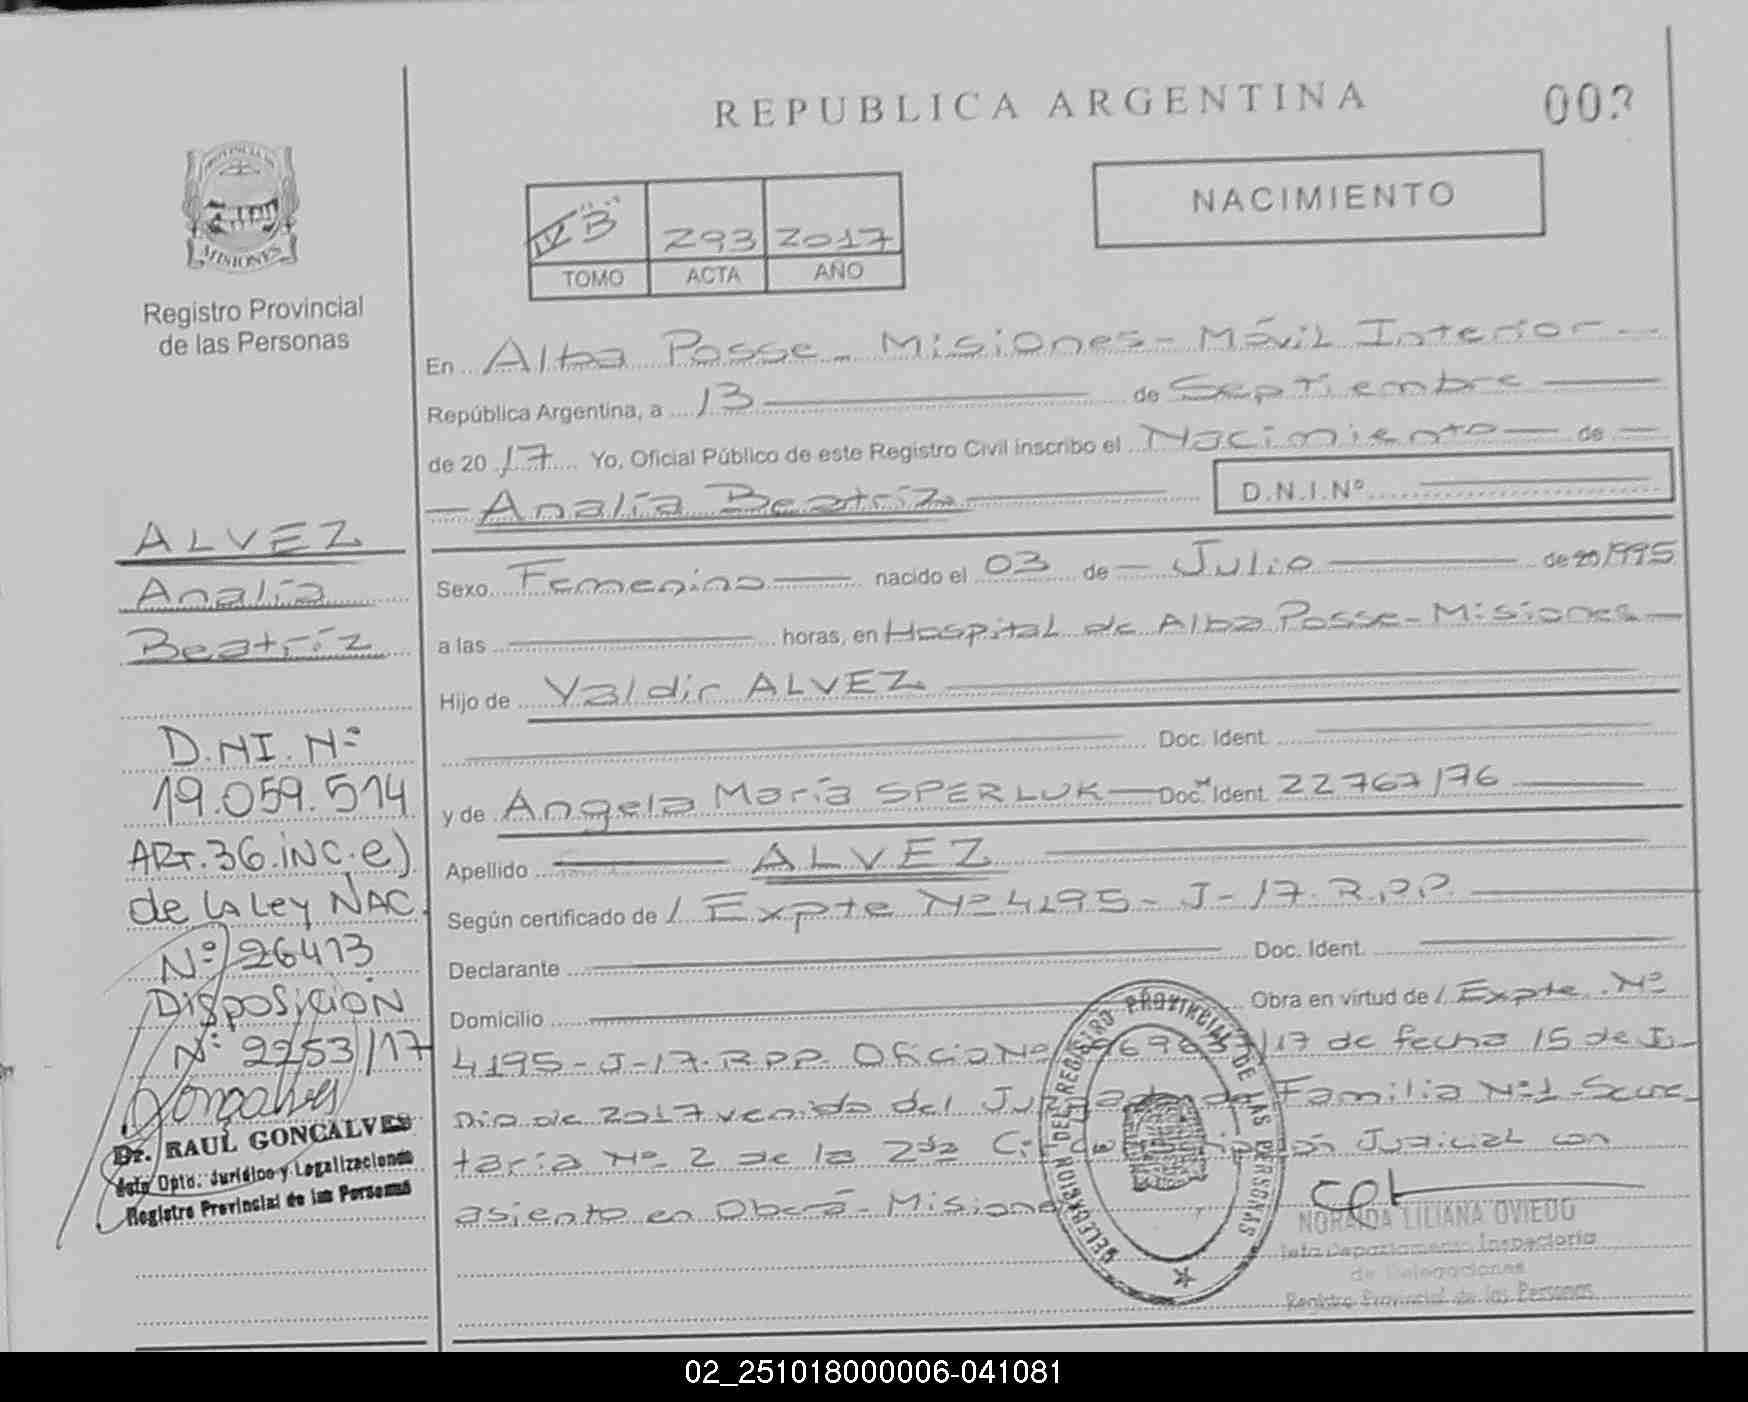 REPUBLICA ARGENTINA
002
PROVINCIA DE
MISIONES
Registro Provincial
de las Personas
IV "B" 293 2017
TOMO ACTA AÑO
NACIMIENTO
En Alba Posse - Misiones - Móvil Interior -
República Argentina, a 13 de Septiembre
de 2017 Yo, Oficial Público de este Registro Civil inscribo el Nacimiento de
Analía Beatríz D.N.I.Nº
Sexo Femenino nacido el 03 de Julio de 20 1995
a las horas, en Hospital de Alba Posse - Misiones -
Hijo de Valdir ALVEZ
Doc. Ident.
y de Angela María SPERLUK Doc. Ident. 22767176
Apellido ALVEZ
Según certificado de / Expte Nº 4195 - J - 17. R.P.P.
Declarante Doc. Ident.
Domicilio Obra en virtud de / Expte. Nº
4195 - J - 17. R.P.P. Oficio Nº /17 de fecha 15 de Ju-
nio de 2017 venido del Juzgado de Familia Nº 1 - Secre-
taría Nº 2 de la 2da Circunscripción Judicial con
asiento en Oberá - Misiones
ALVEZ
Analía
Beatríz
D.NI. Nº
19.059.514
ART. 36. iNC. e)
de la Ley NAC.
Nº 26413
Disposición
Nº 2253/17
Gonçalves
Dr. RAUL GONCALVES
Jefe Dpto. Jurídico y Legalizaciones
Registro Provincial de las Personas
DELEGACION DEL REGISTRO PROVINCIAL DE LAS PERSONAS
NORAIDA LILIANA OVIEDO
Jefa Departamento Inspectoria
de Delegaciones
Registro Provincial de las Personas
02_251018000006-041081